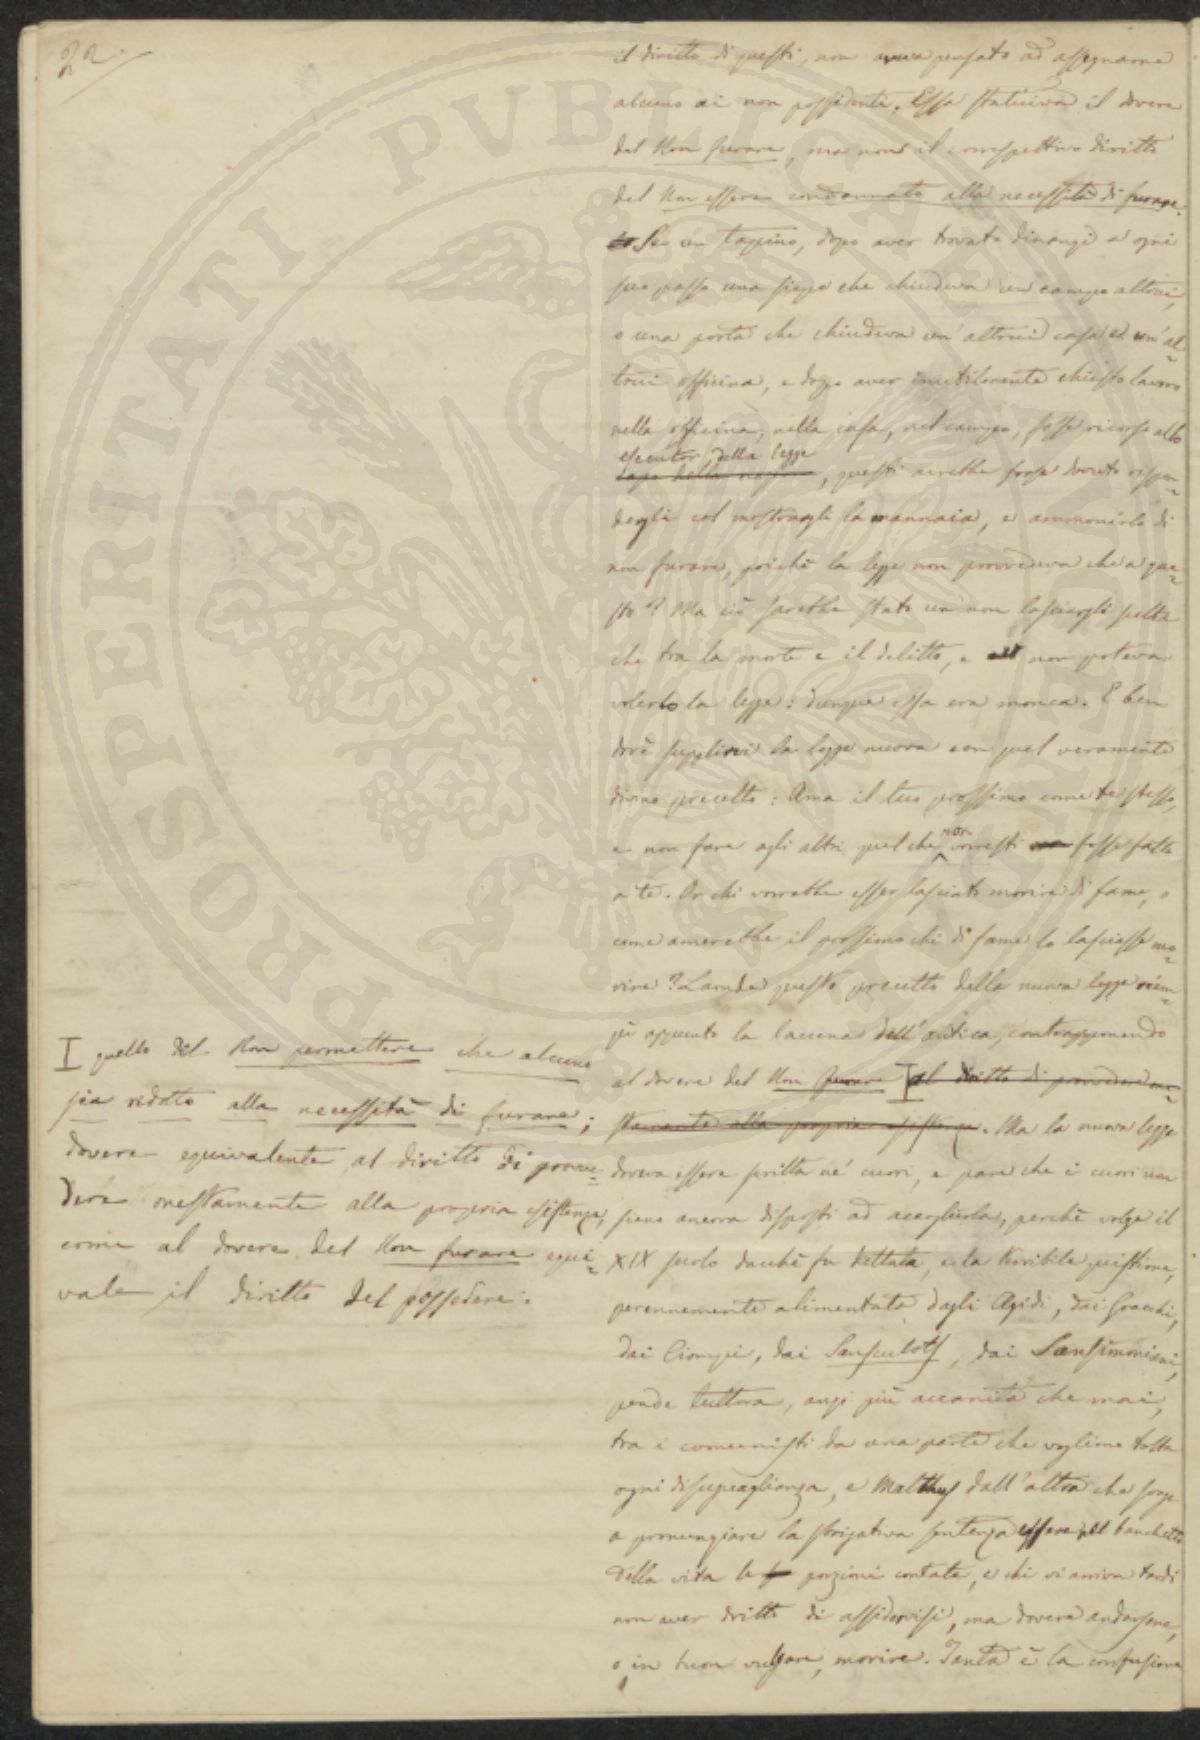 22.
il diritto di questi, non aveva pensato ad assegnarne
alcuno ai non possidenti. Essa statuiva il dovere
del Non furare, ma non il correspettivo diritto
del Non essere condannato alla necessità di furare.
Se un tapino, dopo aver trovato dinanzi a ogni
suo passo una siepe che chiudeva un campo altrui,
o una porta che chiudeva un'altrui casa od un'al=
trui officina, e dopo aver inutilmente chiesto lavoro
nella officina, nella casa, nel campo, fosse ricorso allo
esecutor della legge
capo della, questi avrebbe forse dovuto rispon=
degli col mostragli la mannaia, e ammonirlo di
non furare, poichè la legge non provvedeva che a que=
sto? Ma ciò sarebbe stato un non lasciargli scelta
che tra la morte e il delitto, e non poteva
volerlo la legge: dunque essa era monca. E ben
dovè supplirvi la legge nuova con quel veramente
divino precetto: Ama il tuo prossimo come te stesso,
e non fare agli altri quel che non vorresti fosse fatto
a te. Or chi vorrebbe esser lasciato morire di fame, o
come amerebbe il prossimo chi di fame lo lasciasse mo=
rire? Laonde questo precetto della nuova legge riem=
pì appunto la lacuna dell'antica, contrapponendo
al dovere del Non furare I al diritto di provvedere one=
stamente alla propria esistenza. Ma la nuova legge
doveva essere scritta ne' cuori, e pare che i cuori non
sieno ancora disposti ad accoglierla, perchè volge il
XIX secolo dacchè fu dettata, e la terribile quistione,
perennemente alimentata dagli Agidi, dai Gracchi,
dai Ciompi, dai Sansculots, dai Sansimoniani,
pende tuttora, anzi più accanita che mai,
tra i comunisti da una parte che vogliono tolta
ogni disuguaglianza, e Malthus dall'altra che sorge
a pronunziare la sbrigativa sentenza essere nel banchetto
della vita le porzioni contate, e chi vi arriva tardi
non aver dritto di assidervisi, ma dovere andarsene,
o, in buon vulgare, morire. Tanta è la confusione
I quello del Non permettere che alcuno
sia ridotto alla necessità di furare;
dovere equivalente al diritto di provve=
dere onestamente alla propria esistenza,
come al dovere del Non furare equi=
vale il diritto del possedere.
PROSPERITATI PUBLICAE